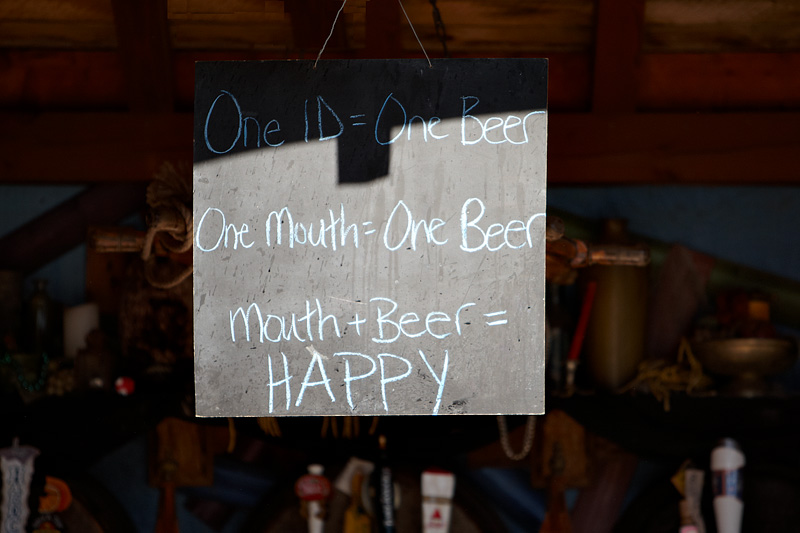 One ID = One Beer
One Mouth = One Beer
Mouth + Beer =
HAPPY